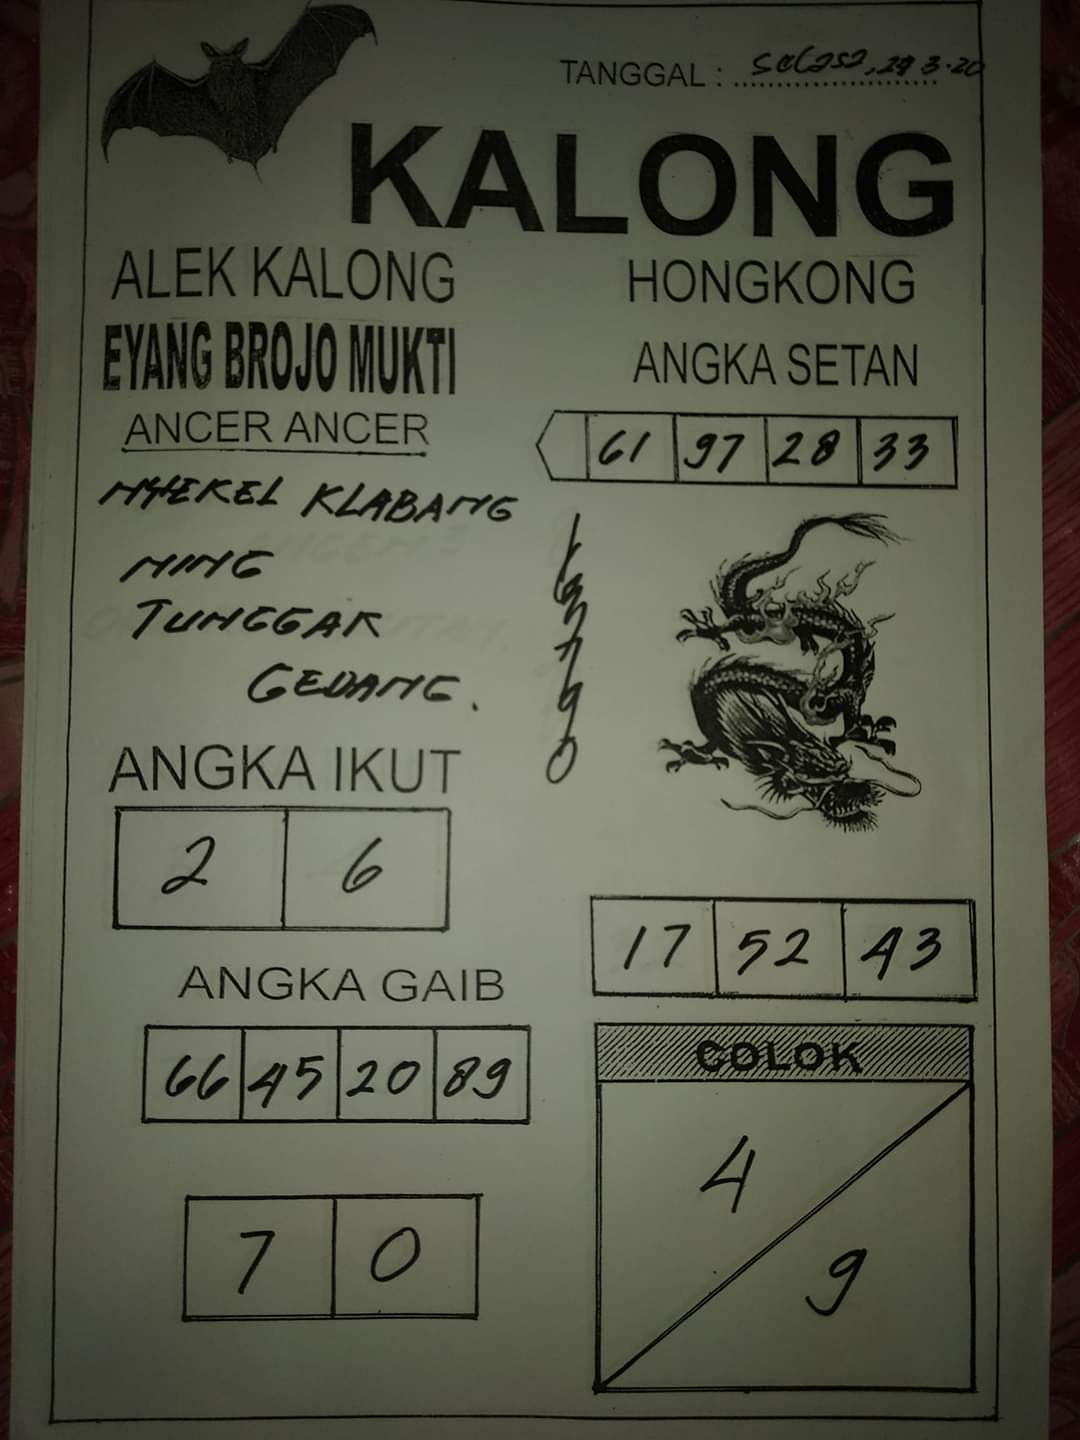 TANGGAL : Selasa, 24 3-20
KALONG
ALEK KALONG
EYANG BROJO MUKTI
ANCER ANCER
NYEKEL KLABANG
NING
TUNGGAK
GEDANG.
ANGKA IKUT
2 6
ANGKA GAIB
66 45 20 89
7 0
HONGKONG
ANGKA SETAN
61 97 28 33
1
7
9
0
17 52 43
COLOK
4
9